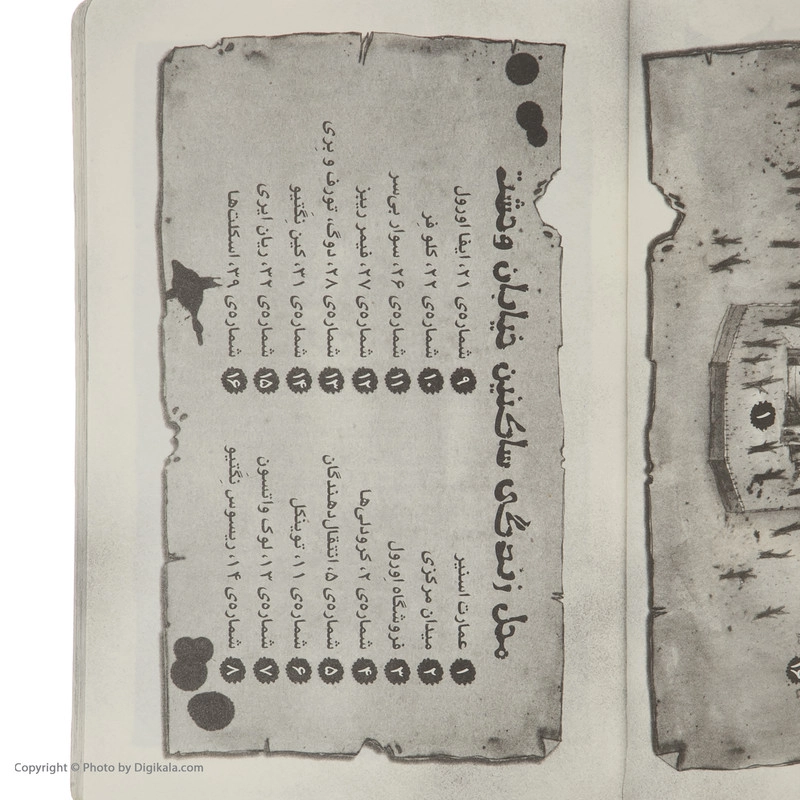 محل زندگی ساکنین خیابان وحشت
۱ عمارت اسنیر
۲ میدان مرکزی
۳ فروشگاه اِورول
۴ شماره‌ی ۲، کرودلی‌ها
۵ شماره‌ی ۵، انتقال‌دهندگان
۶ شماره‌ی ۱۱، توینکل
۷ شماره‌ی ۱۳، لوک واتسون
۸ شماره‌ی ۱۴، ریسوس نگتیو
۹ شماره‌ی ۲۱، ایفا اورول
۱۰ شماره‌ی ۲۲، کلو فر
۱۱ شماره‌ی ۲۶، سوار بی‌سر
۱۲ شماره‌ی ۲۷، فیمر ریبز
۱۳ شماره‌ی ۲۸، دوگ، تورف و بری
۱۴ شماره‌ی ۳۱، کین نگتیو
۱۵ شماره‌ی ۳۲، ریان ایری
۱۶ شماره‌ی ۳۹، اسکلت‌ها
۱
Copyright © Photo by Digikala.com